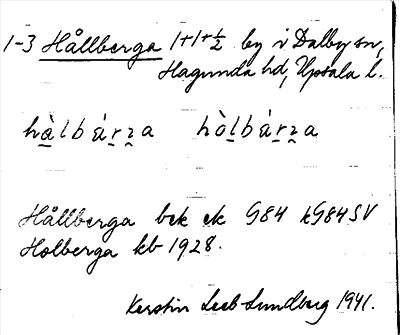 1-3 Hållberga 1+1+½ by i Dalby sn,
Hagunda hd, Upsala l.
hà̱lbár̤z̤a hòḻbár̤z̤a
Hållberga bek ek G84 kG84SV
Holberga kb 1928.
Kerstin Leeb-Lundberg 1941.